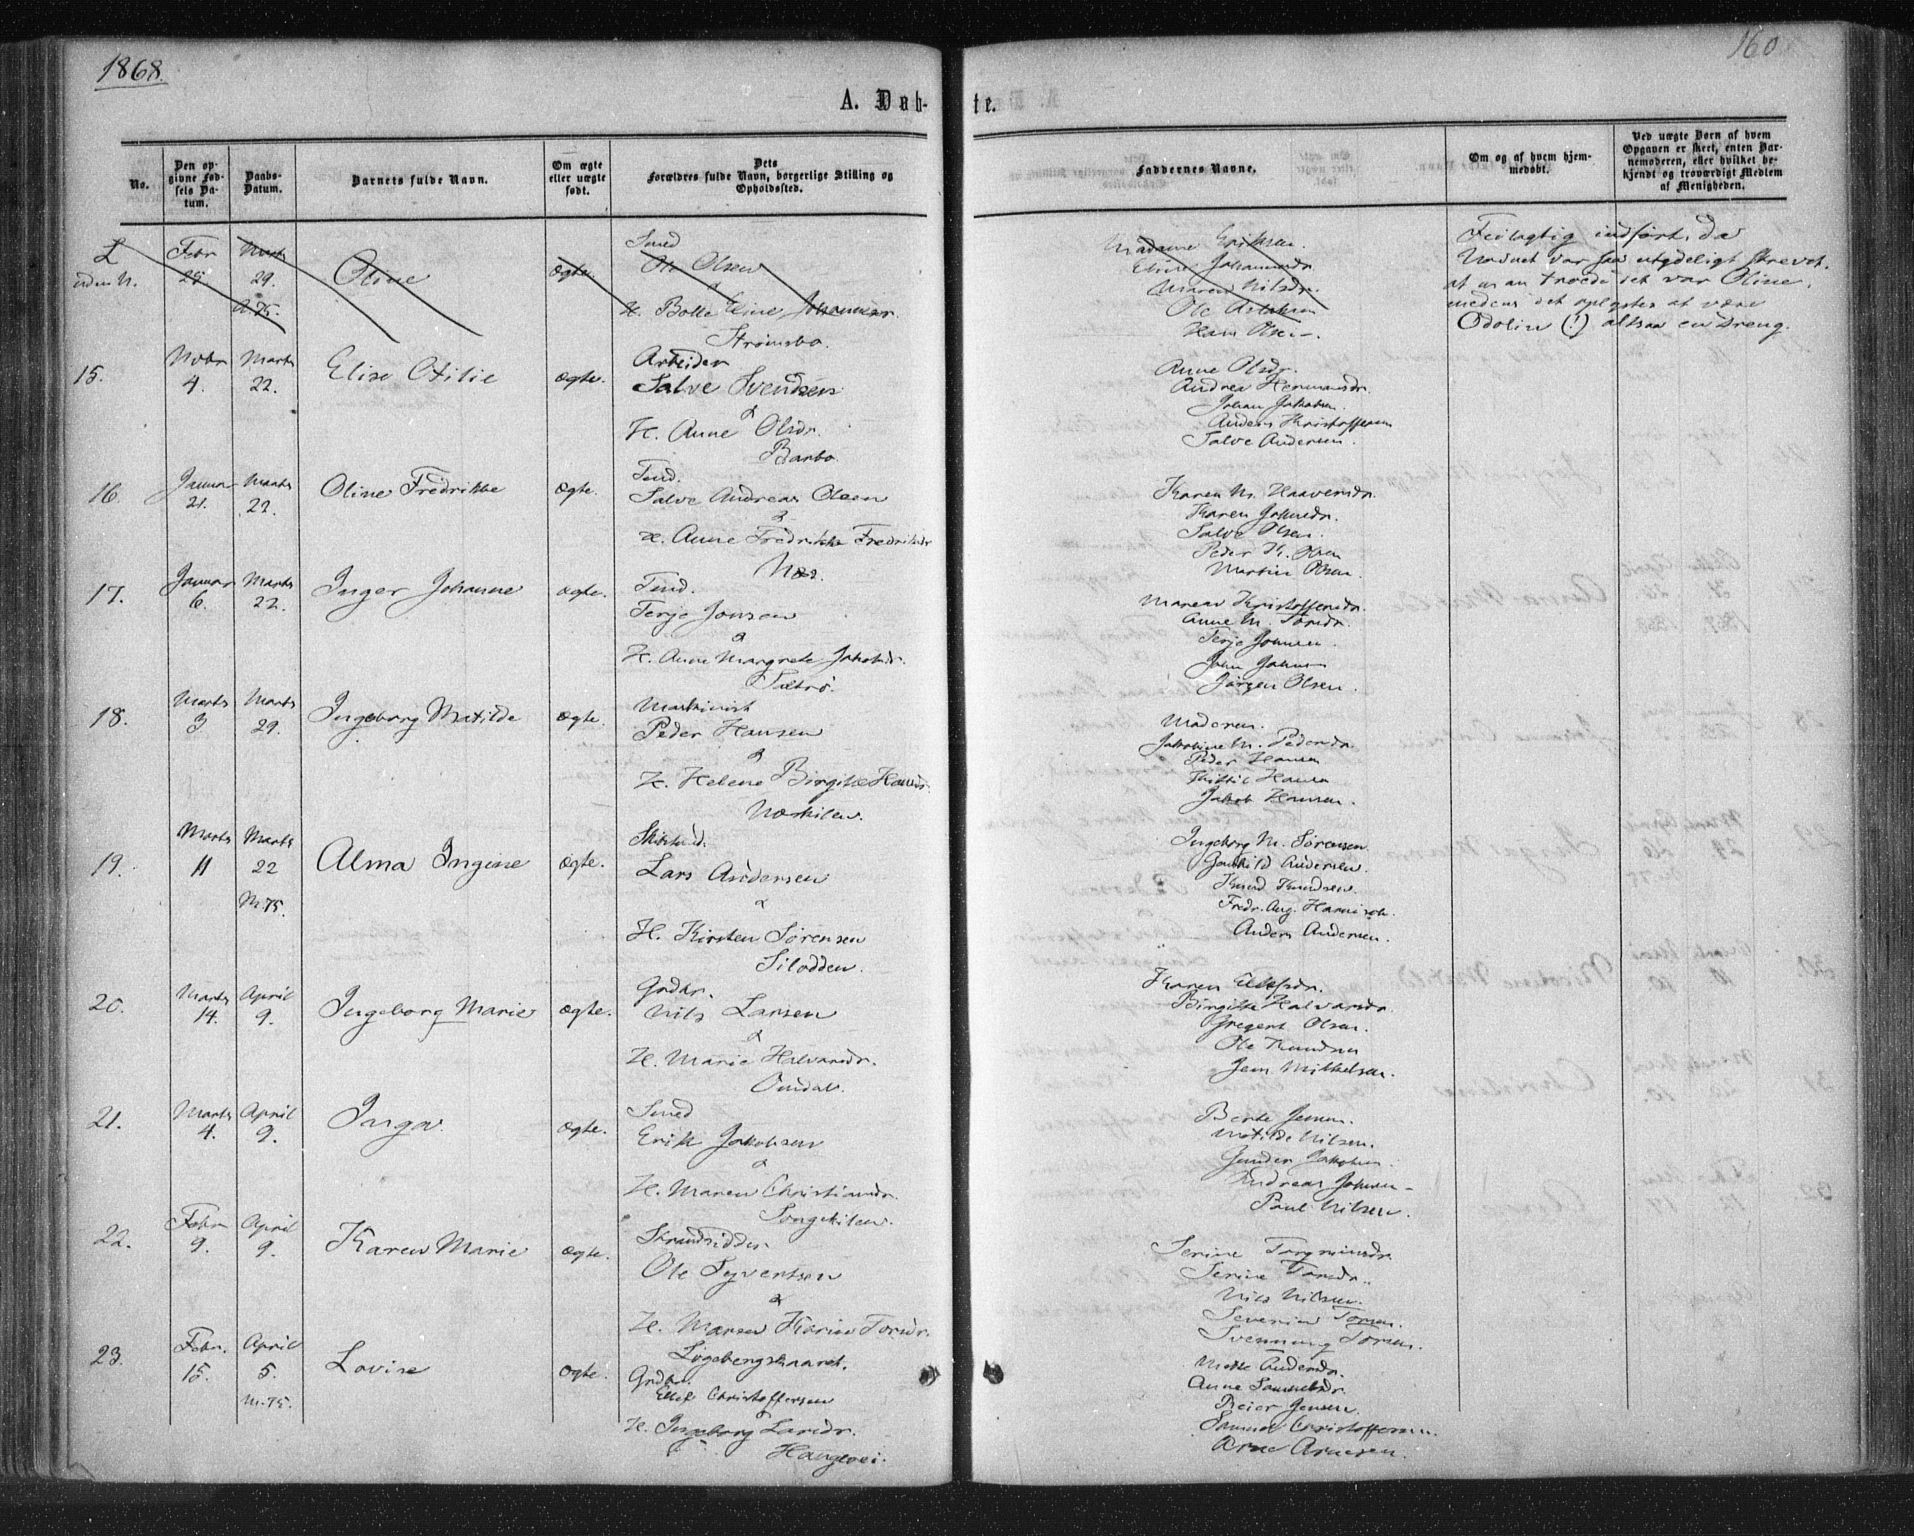 1868.
160
A. Døb-te.
No.
Den opgivne Fødsels Datum.
Daabs-Datum.
Barnets fulde Navn.
Om ægte eller uægte født.
Dets Forældres fulde Navn, borgerlige Stilling og Opholdssted.
Faddernes Navne.
Om og af hvem hjemmedøbt.
Ved uægte Børn af hvem Opgaven er skeet, enten Barnemoderen, eller hvilket bekjendt og troværdigt Medlem af Menigheden.
uden N.
Febr
Marts
29.
Oline
ægte
Smed
Ole Olsen
&
H. Bolle Eline Johannesdr.
Strømsbo.
Madame Eriksen.
Eline Johannesdr
Maren Nilsdr.
Hans Olsen.
Feilagtig indført, da
Navnet var saa utydeligt skrevet,
at man troede det var Oline,
medens det oplystes at være
Odolin (!) altsaa en Dreng.
15.
Nobr 4.
Marts 22.
Elise Otilie
ægte.
Arbeider
Salve Svendsen
&
H. Anne Olsdr.
Barbo.
Anne Olsdr.
Andrea Hermansdr.
Johan Jakobsen.
Anders Kristoffersen
Salve Andersen.
16.
Januar 21.
Marts 22.
Oline Fredrikke
ægte.
Tmd.
Salve Andreas Olsen
&
H. Anne Fredrikke Fredriksdr
Næs.
Karen M. Haavorsdr.
Karen Johnsdr.
Salve Olsen.
Peder K. Olsen
Martin Olsen.
17.
Januar 6.
Marts 22.
Inger Johanne
ægte.
Tmd.
Terje Jonsen
&
H. Anne Margrete Jakobsdr.
Sætrø.
Maren Kristoffersdr.
Anne M. Tomdr.
Terje Johnsen.
John Johnsen
Jørgen Olsen.
18.
Marts 3
Marts 29.
Ingeborg Matilde
ægte.
Maskinist
Peder Hansen
&
H. Helene Birgitte Hansdr.
Næskilen.
Moderen.
Jakobine M. Pedersdr.
Peder Hansen
Kittil Hansen
Jakob Hansen.
19.
Marts 11
Marts 22
M. 75.
Alma Ingine
ægte.
Lars Andersen
&
H. Kirsten Sørensen
Silodden.
Ingeborg M. Sørensen
Gunhild Andersen.
Knud Knudsen.
Fredr. Aug. Hanisch.
Anders Andersen.
20.
Marts 14.
April 9.
Ingeborg Marie
ægte.
Grdbr.
Nils Larsen
&
H. Marie Halvorsdr.
Omdal.
Karen Ellefsdr.
Birgitte Halvorsdr.
Gregert Olsen.
Ole Knudsen
Jens Mikkelsen.
21.
Marts 4.
April 9.
Inga.
ægte.
Smed
Erik Jakobsen
&
H. Maren Christiansdr.
Songekilen.
Berte Jensen.
Matilde Nilsen.
Gunder Jakobsen.
Andreas Johnsen
Paul Nilsen.
22.
Febr 9.
April 9.
Karen Marie
ægte.
Strandsidder
Ole Syvertsen
&
H. Maren Karine Torsdr.
Løgebergskaaret.
Serine Torgrimsdr.
Serine Torsdr.
Nils Nilsen.
Severin Torsen.
Svennung Torsen.
23.
Febr. 15.
April 5.
M. 75.
Lovise
ægte.
Grdbr.
Ellef Christoffersen
&
H. Ingeborg Larsdr.
Haugevei.
Mette Andersdr.
Anne Samuelsdr.
Reier Jensen.
Samuel Christoffersen.
Arne Arnesen.